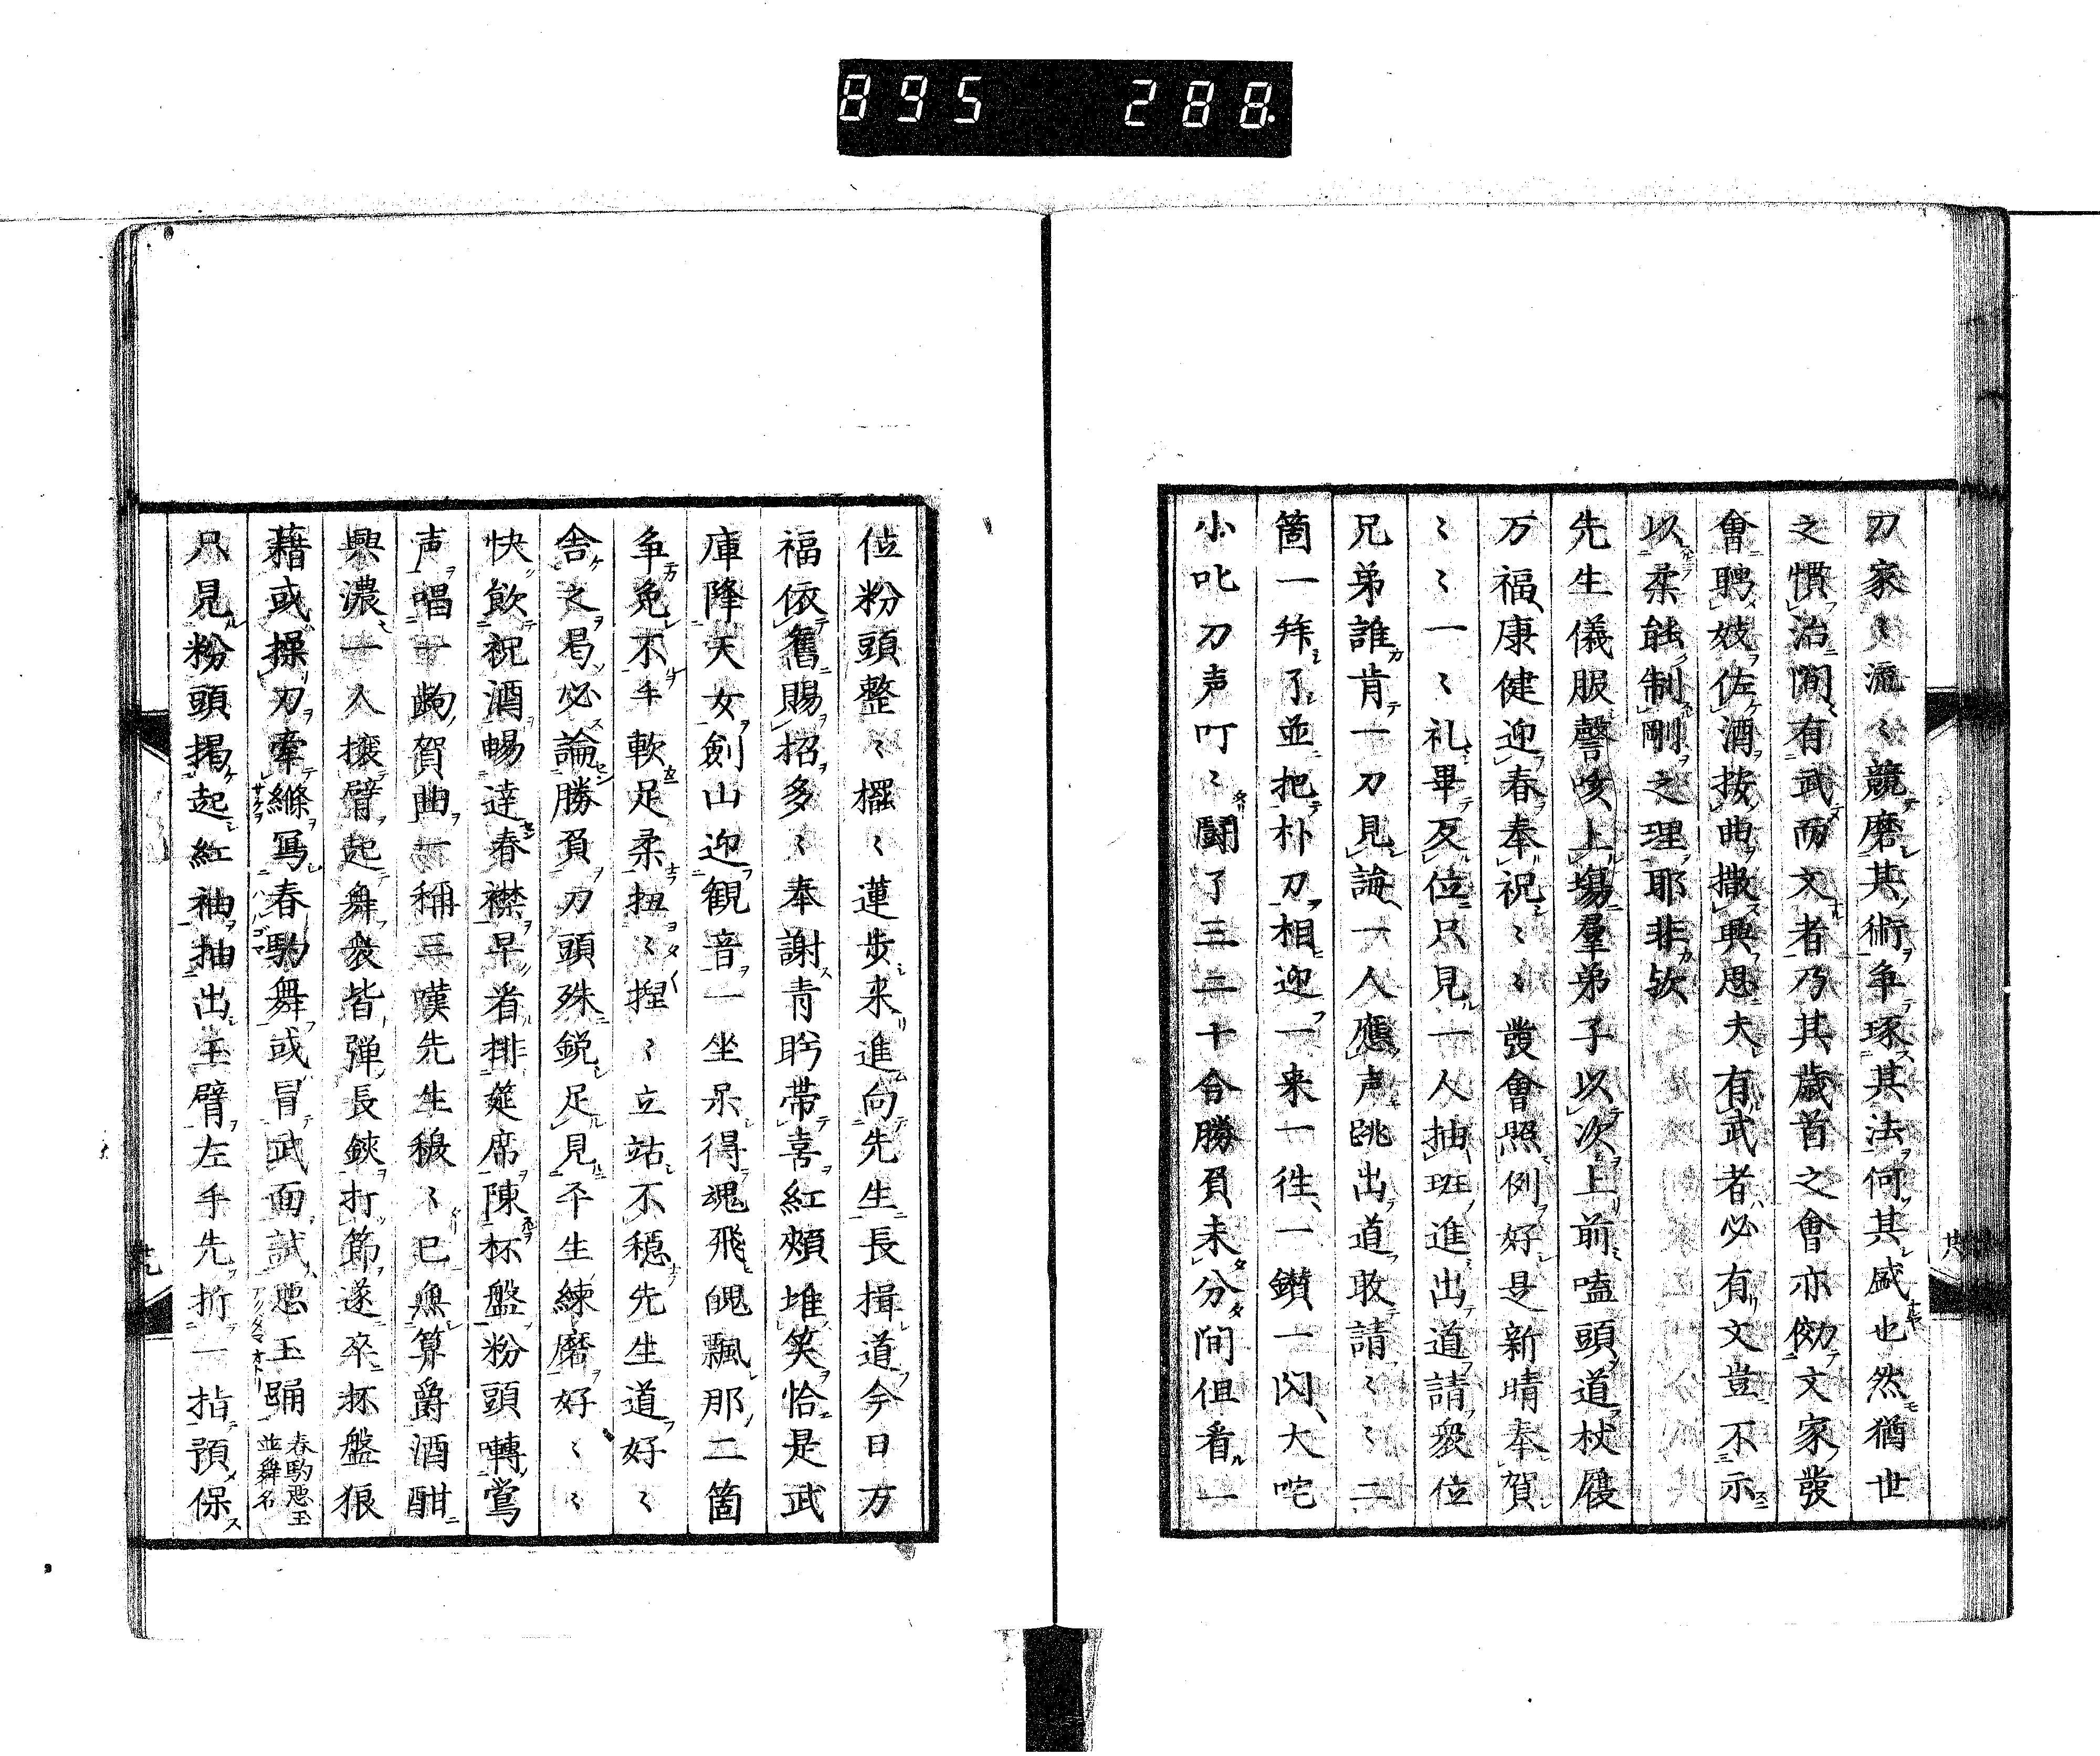 895 288.
刀家〻流〻競磨其術争琢其法何其盛也然猶世
之慣治間有武而文者乃其歳首之會亦俲文家發
會聘妓佐酒按曲撒興思夫有武者必有文豈不示
以柔能制剛之理耶非欤
先生儀服謦咳上塲羣弟子以次上前嗑頭道杖履
万福康健迎春奉祝〻〻發會照例好是新晴奉賀
〻〻一〻礼畢反位只見一人抽班進出道請衆位
兄弟誰肯一刀見論一人應声跳出道敢請〻〻二
箇一拜了並把朴刀相迎一来一往一鑚一閃大咤
小叱刀声叮〻闘了三二十合勝負未分間伹看一
位粉頭整〻擺〻蓮步来進向先生長揖道今日万
福依舊賜招多〻奉謝青眄帯喜紅頰堆笑恰是武
庫降天女劍山迎観音一坐呆得魂飛魄飄那二箇
争免不手軟足柔扭〻捏〻立站不穏先生道好〻
舎之曷必論勝負刀頭殊鋭足見平生練磨好〻〻
快飲祝酒暢達春襟早看排筵席陳杯盤粉頭囀鴬
声唱一齣賀曲一稱三嘆先生稷〻已無算爵酒酣
興濃一人攘臂起舞衆皆弾長鋏打節遂卒杯盤狼
藉或操刀牽絛写春駒舞或冒武面試悪玉踊春駒悪玉並舞名
只見粉頭掲起紅袖抽出玉臂左手先折一指預保